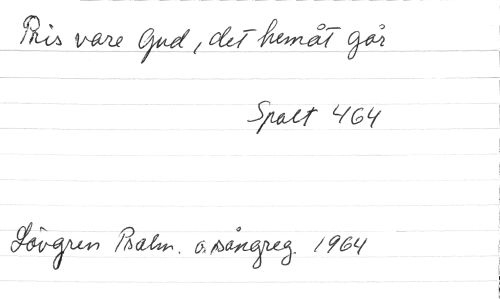 Pris vare Gud, det hemåt går
Spalt 464
Lövgren Psalm. o. sångreg. 1964